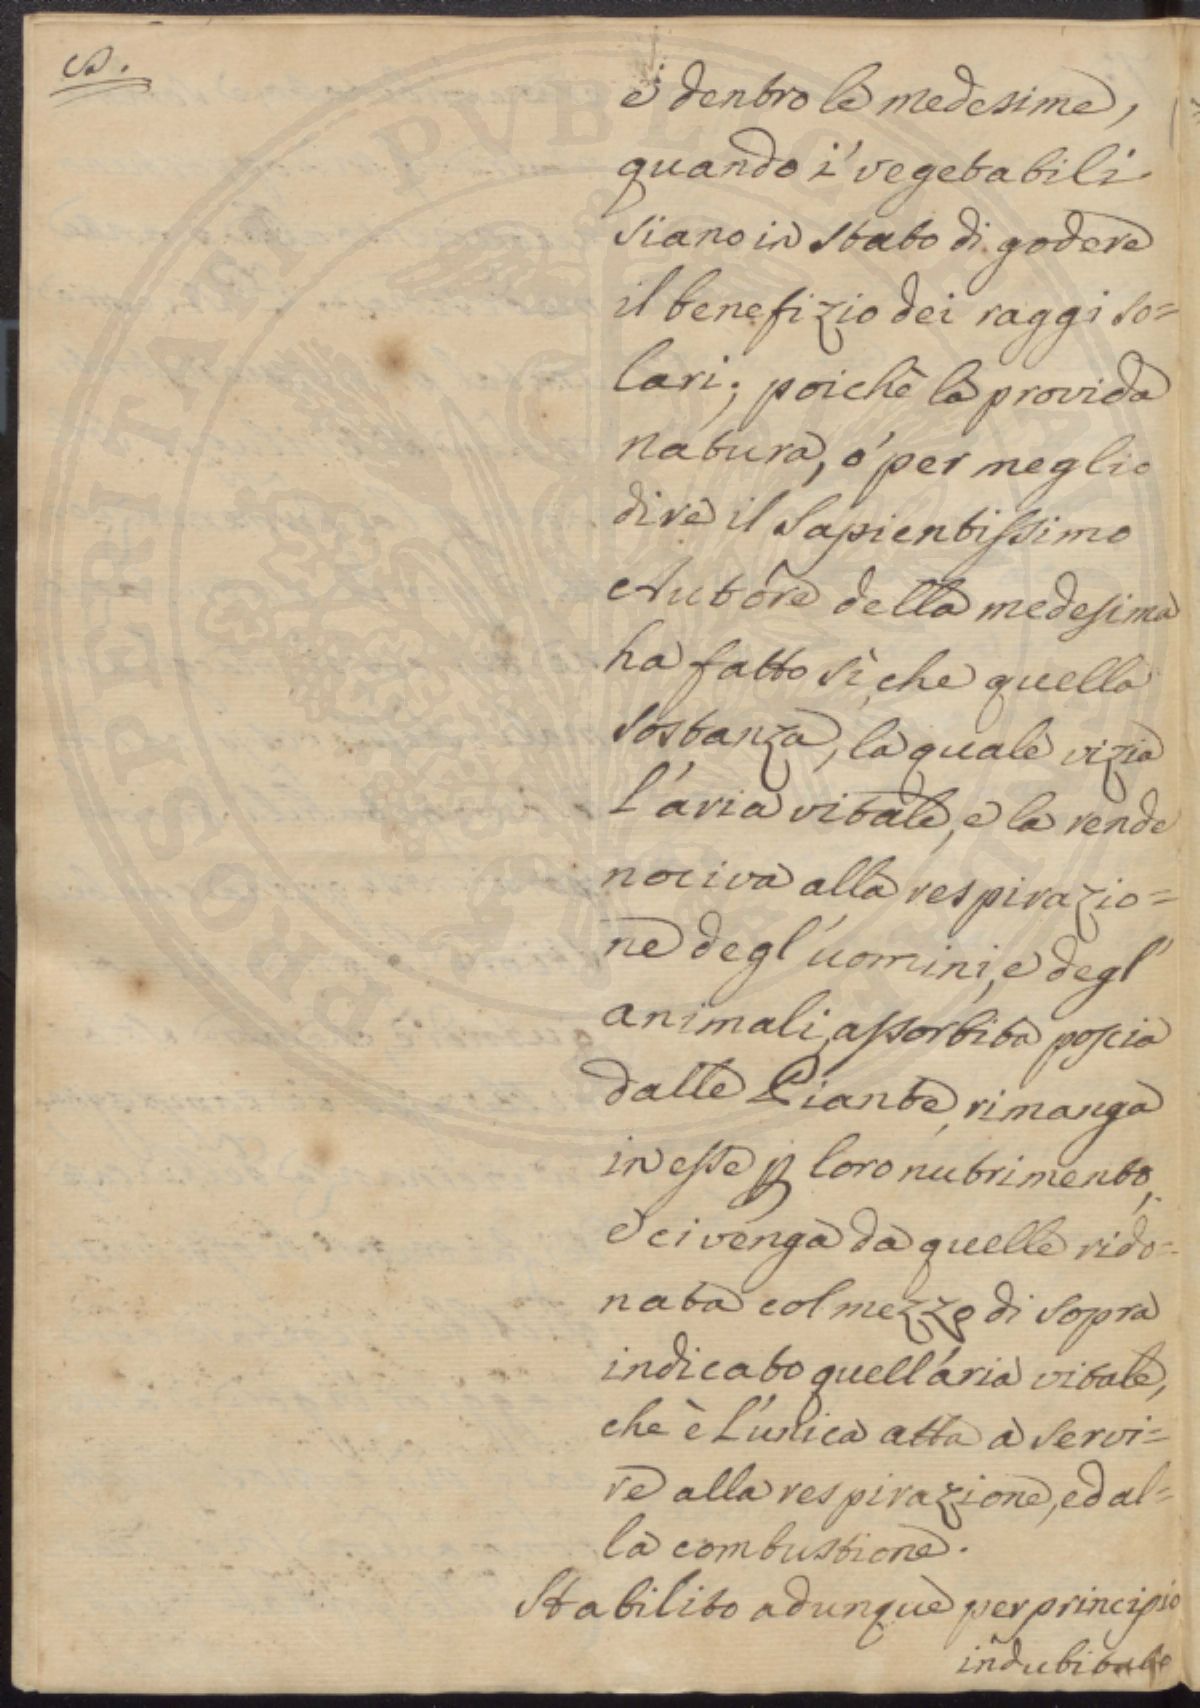 e dentro le medesime,
quando i' vegetabili
siano in stato di godere
il benefizio dei raggi so=
lari; poichè la provida
natura, o' per meglio
dire il Sapientissimo
Autore della medesima
ha fatto sì, che quella
sostanza, la quale vizia
l'aria vitale, e la rende
nociva alla respirazio=
ne degl'uomini, e degl'
animali, assorbita poscia
dalle Piante, rimanga
in esse p loro nutrimento,
e ci venga da quelle rido=
nata col mezzo di sopra
indicato quell'aria vitale,
che è l'unica atta a servi=
re alla respirazione, ed al=
la combustione.
Stabilito adunque per principio
indubitabile
PROSPERITATI PVBLICAE